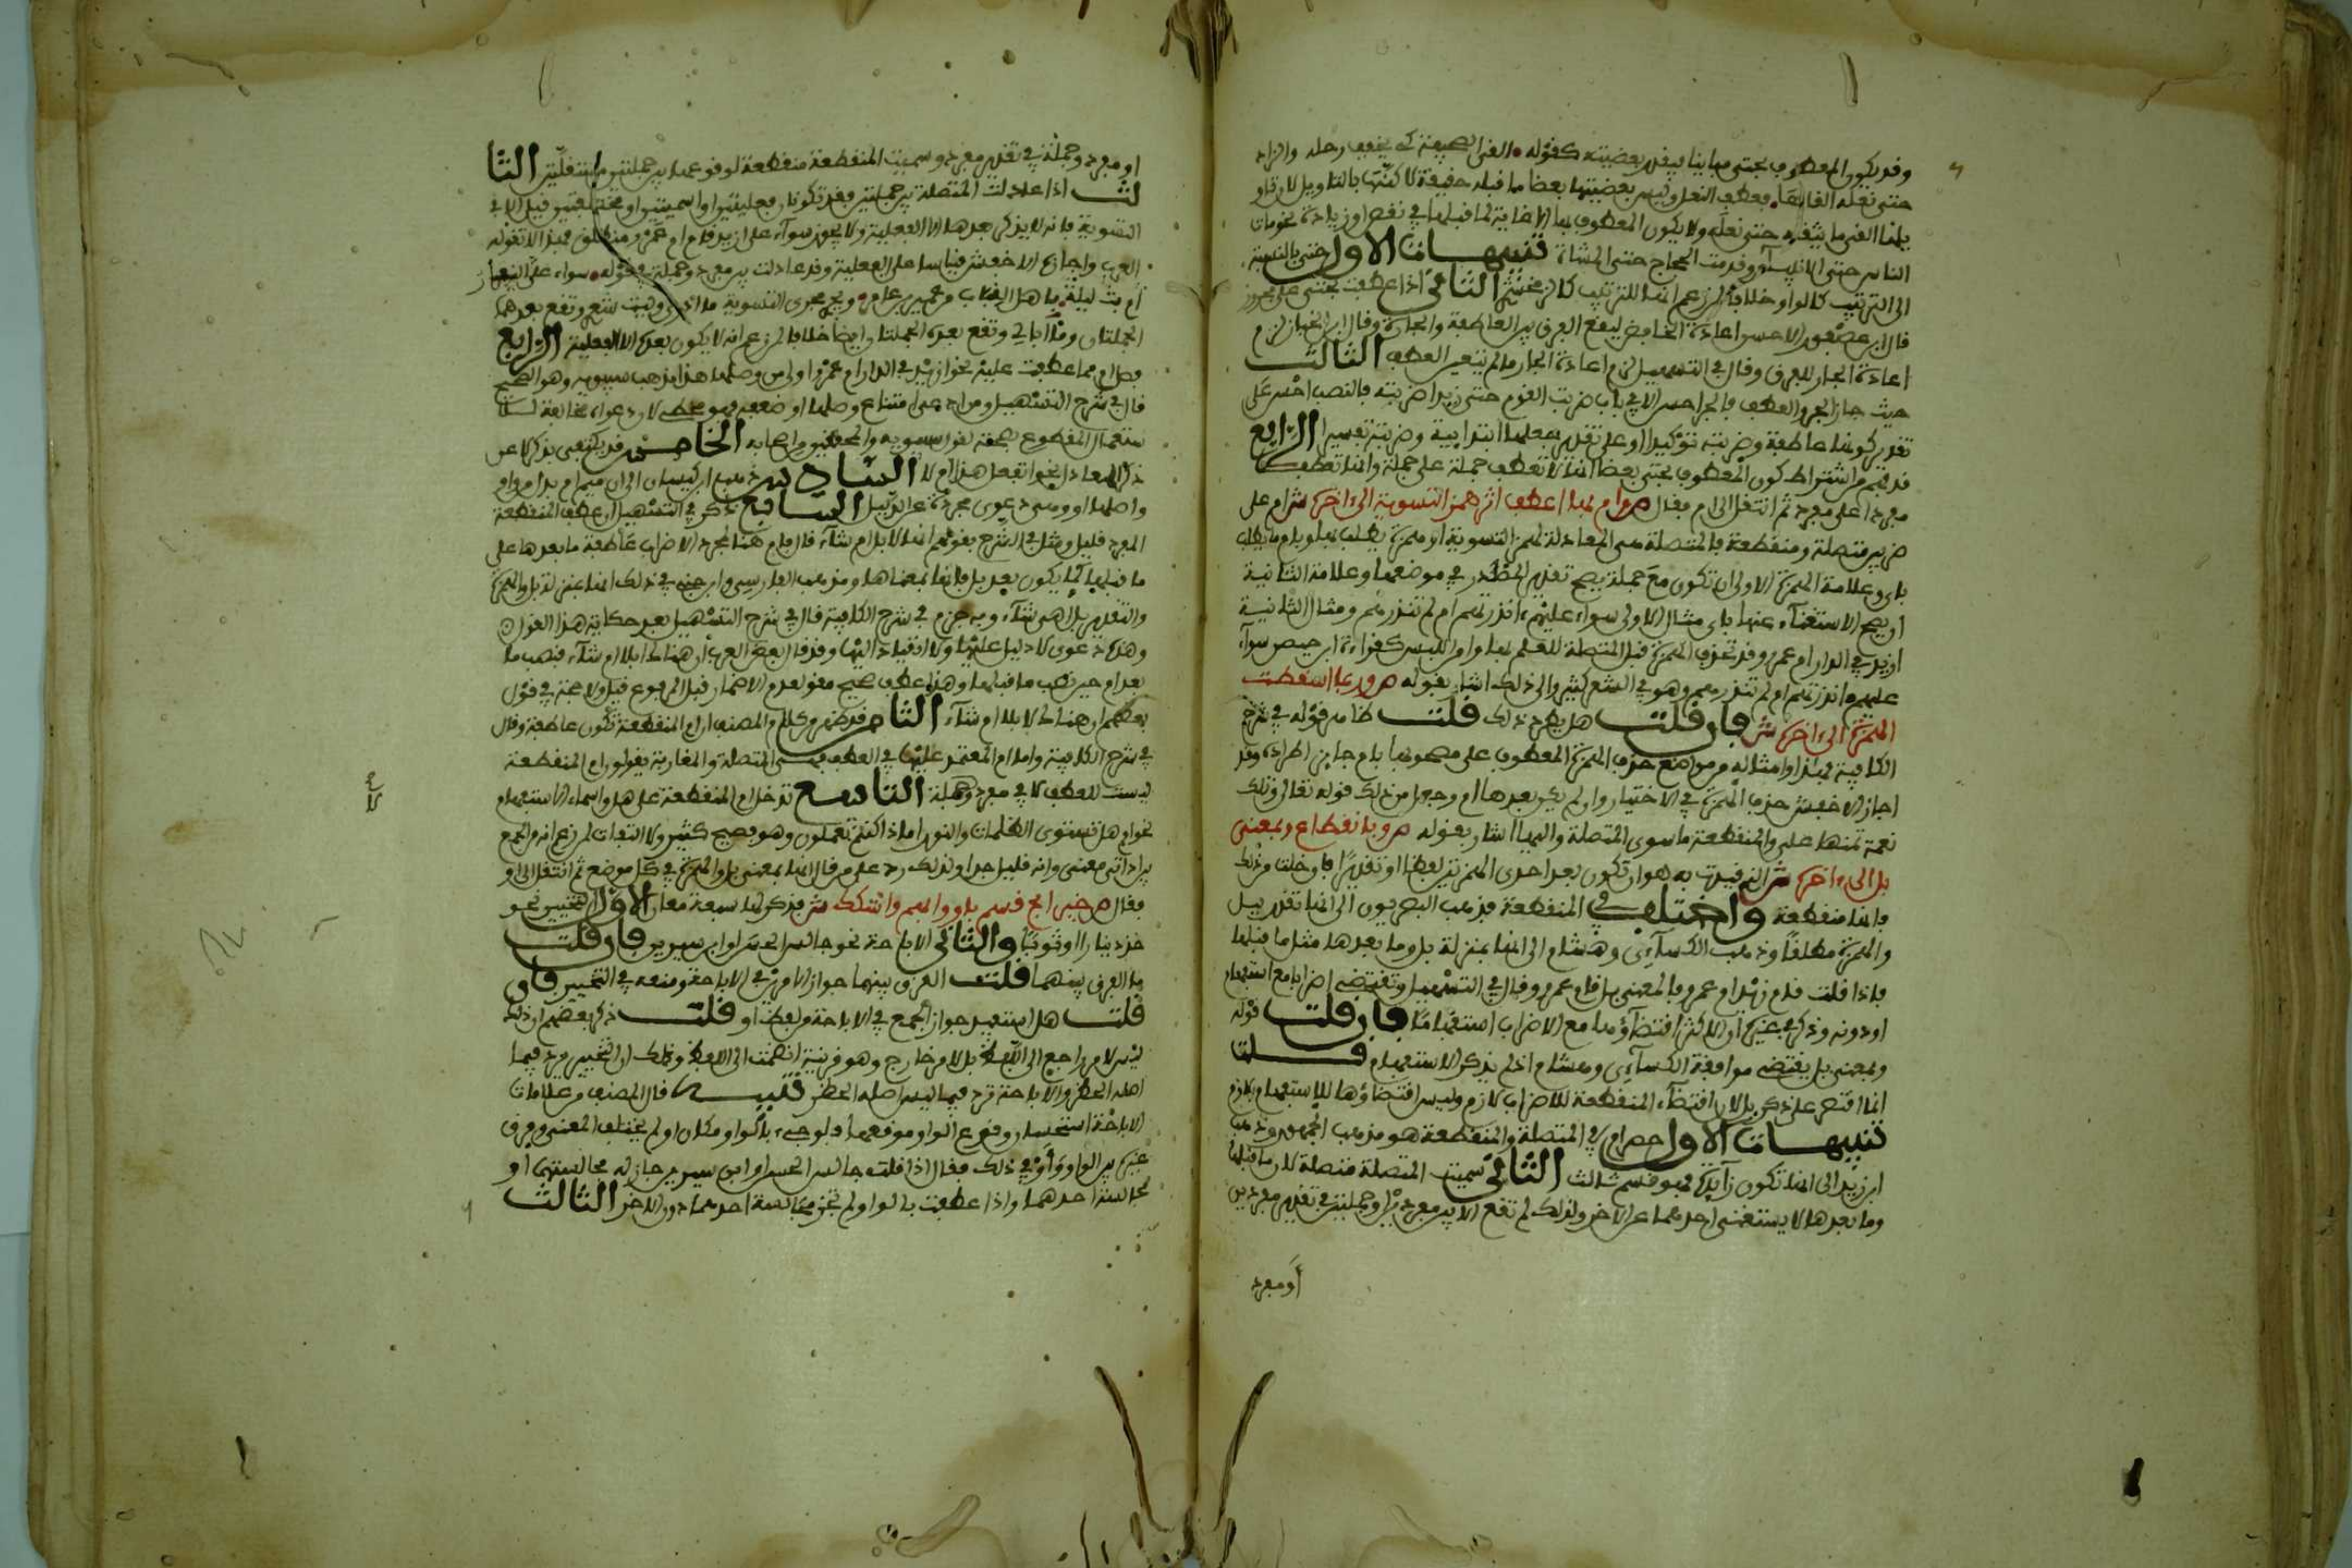 وقد يكون المعطوف بحتى مباينا فيقدر بعضيته كقوله الفى الصحيفة كى يخفف رحله والزاد
حتى نعله القاها فعطف النعل وليس بعضيتها بعضا ما قبله حقيقة لاكنها بالتاويل لان قوله
القى ما يثقله حتى نعله ولا يكون المعطوف بها الا غاية لما قبلها في نقص او زيادة نحو مات
الناس حتى الانبياء وقدمت الحجاج حتى المشاة تنبيهات الاول حتى بالنسبة
الى الترتيب كالواو خلافا لمن زعم انها للترتيب كالزمخشري الثاني اذا عطفت بحتى على مجرور
قال ابن عصفور الاحسن اعادة الخافض ليقع الفرق بين العاطفة والجارة وقال ابن الخباز لزم
اعادة الجار للفرق وقال في التسهيل لزم اعادة الجار ما لم يتعين العطف الثالث
حيث جاز الجر والعطف فالجر احسن الا في باب ضربت القوم حتى زيدا ضربته فالنصب احسن على
تقدير كونها عاطفة وضربته توكيدا او على تقدير جعلها ابتدايية وضربته تفسير الرابع
قد فهم من اشتراط كون المعطوف بحتى بعضا انها لا تعطف جملة على جملة وانما تعطف
مفردا على مفرد ثم انتقل الى ام فقال ص وام بها اعطف اثر همز التسوية الى اخره ش ام على
ضربين متصلة ومنقطعة فالمتصلة هي المعادلة لهمز التسوية او همزة يطلب بها وبام ما يطلب
باي وعلامة الهمزة الاولى ان تكون مع جملة يصح تقدير المصدر في موضعها وعلامة الثانية
ان يصح الاستغناء عنها باي مثال الاولى سواء عليهم ءانذرتهم ام لم تنذرهم ومثال الثانية
ازيد في الدار ام عمرو وقد تحذف الهمزة قبل المتصلة للعلم بها وامن اللبس كقراءة ابن محيصن سواء
عليهم انذرتهم ام لم تنذرهم وهو في الشعر كثير والى ذلك اشار بقوله ص وربما اسقطت
الهمزة الى اخره ش فان قلت هل يطرد ذلك قلت ظاهر قوله في شرح
الكافية فهذا وامثاله من مواضع حذف الهمزة المعطوف على مصحوبها بام جايز اطراده وقد
اجاز الاخفش حذف الهمزة في الاختيار وان لم يكن بعدها ام وجعل من ذلك قوله تعالى وتلك
نعمة تمنها علي والمنقطعة ما سوى المتصلة واليها اشار بقوله ص وبانقطاع وبمعنى
بل الى اخره ش الذي قيدت به هو ان تكون بعد احدى الهمزتين لفظا او تقديرا فان خلت من ذلك
فانها منقطعة واختلف في المنقطعة فذهب البصريون الى انها تقدر ببل
والهمزة مطلقا وذهب الكساءي وهشام الى انها بمنزلة بل وما بعدها مثل ما قبلها
فاذا قلت قام زيد ام عمرو فالمعنى بل قام عمرو وقال في التسهيل وتقتضي اضرابا مع استفهام
او دونه وذكر في غيره ان الاكثر اقتضاؤها مع الاضراب استفهاما فان قلت قوله
وبمعنى بل يقتضي موافقة الكساءي وهشام اذ لم يذكر الاستفهام قلت
انما اقتصر على ذكر بل لان اقتضاء المنقطعة للاضراب لازم وليس اقتضاؤها للاستفهام بلازم
تنبيهات الاول حصر ام في المتصلة والمنقطعة هو مذهب الجمهور وذهب
ابو زيد الى انها تكون زايدة فهو قسم ثالث الثاني سميت المتصلة متصلة لان ما قبلها
وما بعدها لا يستغنى احدهما عن الاخر ولذلك لم تقع الا بين مفردين او جملتين في تقدير مفردين
او مفرد
او مفرد وجملة في تقدير مفرد وسميت المنقطعة منقطعة لوقوعها بين جملتين مستقلتين الثا
لث اذا عادلت المتصلة بين جملتين فقد تكونان فعليتين او اسميتين او مختلفتين قيل الا في
التسوية فانه لا يذكر بعدها الا الفعلية ولا يجوز سواء علي ازيد قام ام عمرو منطلق فهذا لا تقوله
العرب واجازه الاخفش قياسا على الفعلية وقد عادلت بين مفرد وجملة في قوله سواء عليك النفر
ام بت ليلة باهل القباب من نمير بن عامر ويجري مجرى التسوية ما ادري وليت شعري وتقع بعدهما
الجملتان وما ابالي وتقع بعده الجملتان ايضا خلافا لمن زعم انه لا يكون بعده الا الفعلية الرابع
فصل ام مما عطفت عليه نحو ازيد في الدار ام عمرو اولى من وصلها هذا مذهب سيبويه وهو الصحيح
قال في شرح التسهيل ومن ادعى امتناع وصلها او ضعفه فهو مخطئ لان دعواه مخالفة للا
ستعمال المقطوع بصحته لقول سيبويه والمحققين من اصحابه الخامس قد يكتفى بذكر لا عن
ذكر المعادل نحو اتفعل هذا ام لا السادس ذهب ابن كيسان الى ان ميم ام بدل من واو
واصلها او وهي دعوى مجردة عن الدليل السابع ذكر في التسهيل ان عطف المنقطعة
المفرد قليل ومثل في الشرح بقولهم انها لابل ام شاء قال فام هنا لمجرد الاضراب عاطفة ما بعدها على
ما قبلها كما يكون بعد بل فانها بمعناها ومذهب الفارسي وابن جني في ذلك انها بمنزلة بل والهمزة
والتقدير بل اهي شاء وبه جزم في شرح الكافية قال في شرح التسهيل بعد حكاية هذا القول
وهذه دعوى لا دليل عليها ولا انقياد اليها وقد قال بعض العرب ان هناك ابلا ام شاء فنصب ما
بعد ام حين نصب ما قبلها وهذا عطف صحيح مقو لعدم الاضمار قبل المرفوع قيل ولا حجة في قول
بعضهم ان هناك لابلا ام شاء الثامن قد ظهر من كلام المصنف ان ام المنقطعة تكون عاطفة وقال
في شرح الكافية واما ام المعتمد عليها في العطف فهي المتصلة والمغاربة يقولون ام المنقطعة
ليست للعطف لا في مفرد وجملة التاسع تدخل ام المنقطعة على هل واسماء الاستفهام
نحو ام هل تستوي الظلمات والنور اماذا كنتم تعملون وهو فصيح كثير ولا التفات لمن زعم انه من الجمع
بين اداتي معنى وانه قليل جدا ولذلك رد على من قال انها بمعنى بل والهمزة في كل موضع ثم انتقل الى او
فقال ص خير ابح قسم باو وابهم واشكك ش فذكر لها سبعة معان الاول التخيير نحو
خذ دينارا او ثوبا والثاني الاباحة نحو جالس الحسن او ابن سيرين فان قلت
ما الفرق بينهما قلت الفرق بينهما جواز الامرين في الاباحة ومنعه في التخيير فان
قلت هل استفيد جواز الجمع في الاباحة من لفظ او قلت ذكر بعضهم ان ذلك
ليس لامر راجع الى اللفظ بل لامر خارج وهو قرينة انضمت الى اللفظ وذلك ان التخيير يرد فيما
اصله الحظر والاباحة ترد فيما ليس اصله الحظر تنبيه قال المصنف من علامات
الاباحة استحسان وقوع الواو موقعها فلو جيء بالواو مكان او لم يختلف المعنى وفرق
غيره بين الواو واو في ذلك فقال اذا قلت جالس الحسن او ابن سيرين جاز له مجالستهما او
مجالسة احدهما واذا عطفت بالواو لم تجز مجالسة احدهما دون الاخر الثالث